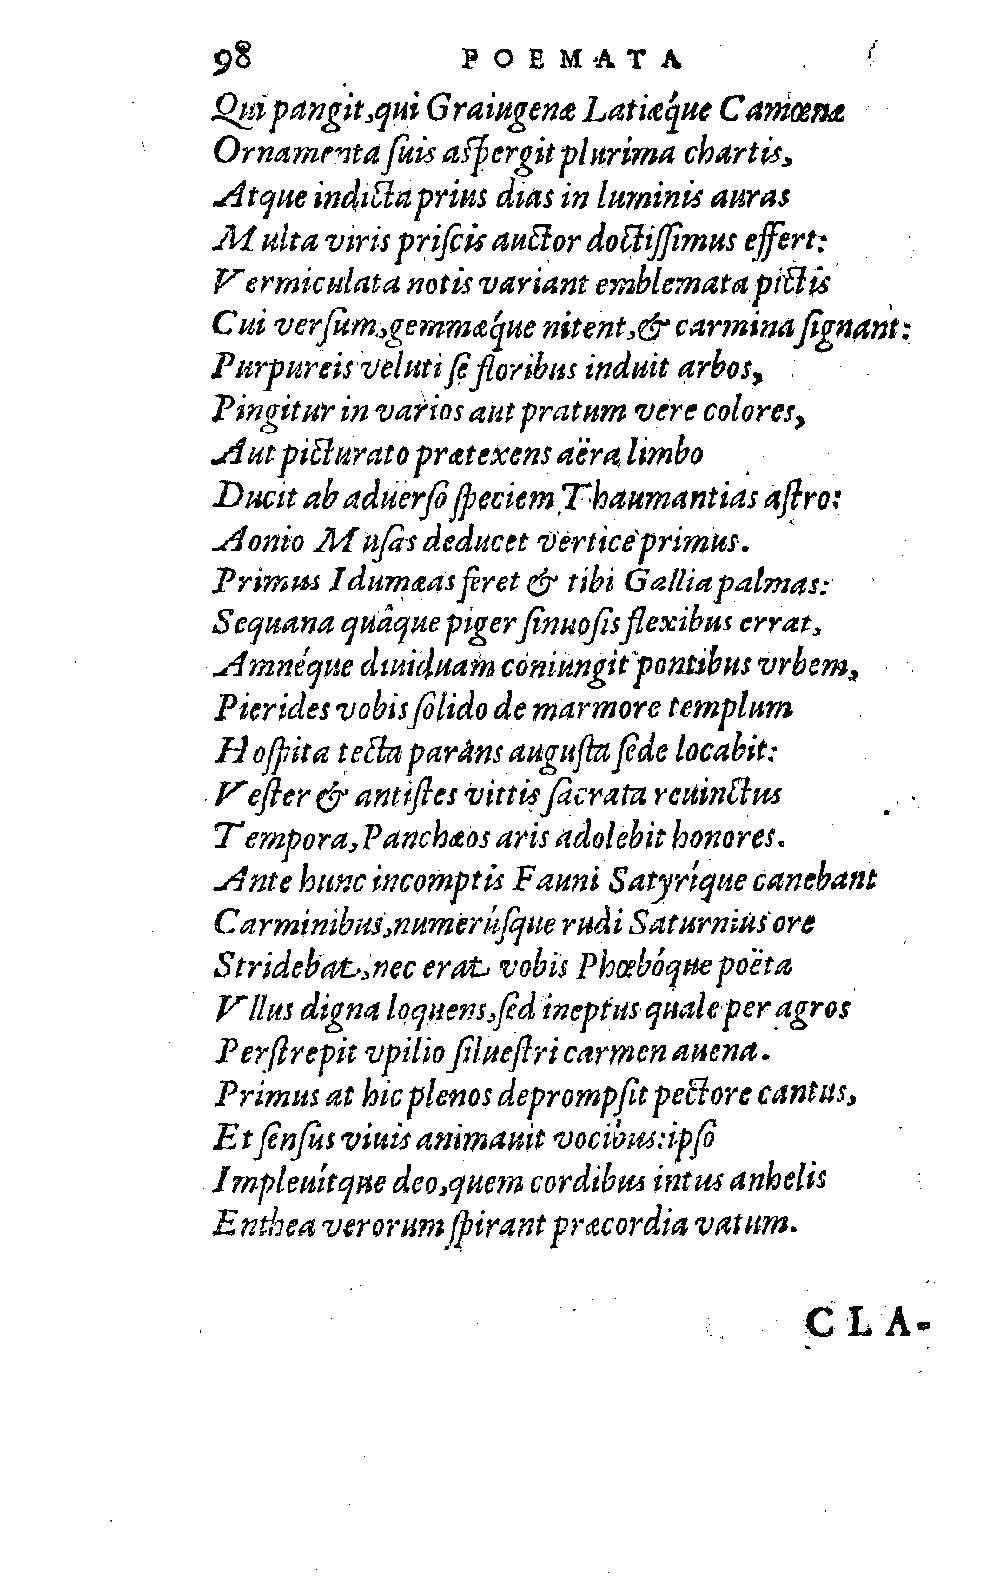 98 POEMATA
Qui pangit, qui Graiugenæ Latiæq́ue Camœnæ
Ornamenta ſuis aſpergit plurima chartis,
Atque indicta prius dias in luminis auras
Multa viris priſcis auctor doctiſſimus effert:
Vermiculata notis variant emblemata pictis
Cui verſum, gemmæq́ue nitent, & carmina ſignant:
Purpureis veluti ſe floribus induit arbos,
Pingitur in varios aut pratum vere colores,
Aut picturato prætexens aëra limbo
Ducit ab aduerſo ſpeciem Thaumantias aſtro:
Aonio Muſas deducet vertice primus.
Primus Idumæas feret & tibi Gallia palmas:
Sequana quâque piger ſinuoſis flexibus errat,
Amnéque diuiduam coniungit pontibus vrbem,
Pierides vobis ſolido de marmore templum
Hoſpita tecta parans auguſta ſede locabit:
Veſter & antiſtes vittis ſacrata reuinctus
Tempora, Panchæos aris adolebit honores.
Ante hunc incomptis Fauni Satyríque canebant
Carminibus, numerúſque rudi Saturnius ore
Stridebat, nec erat vobis Phœbóque poëta
Vllus digna loquens, ſed ineptus quale per agros
Perſtrepit vpilio ſilueſtri carmen auena.
Primus at hic plenos deprompſit pectore cantus,
Et ſenſus viuis animauit vocibus: ipſo
Impleuítque deo, quem cordibus intus anhelis
Enthea verorum ſpirant præcordia vatum.
CLA-